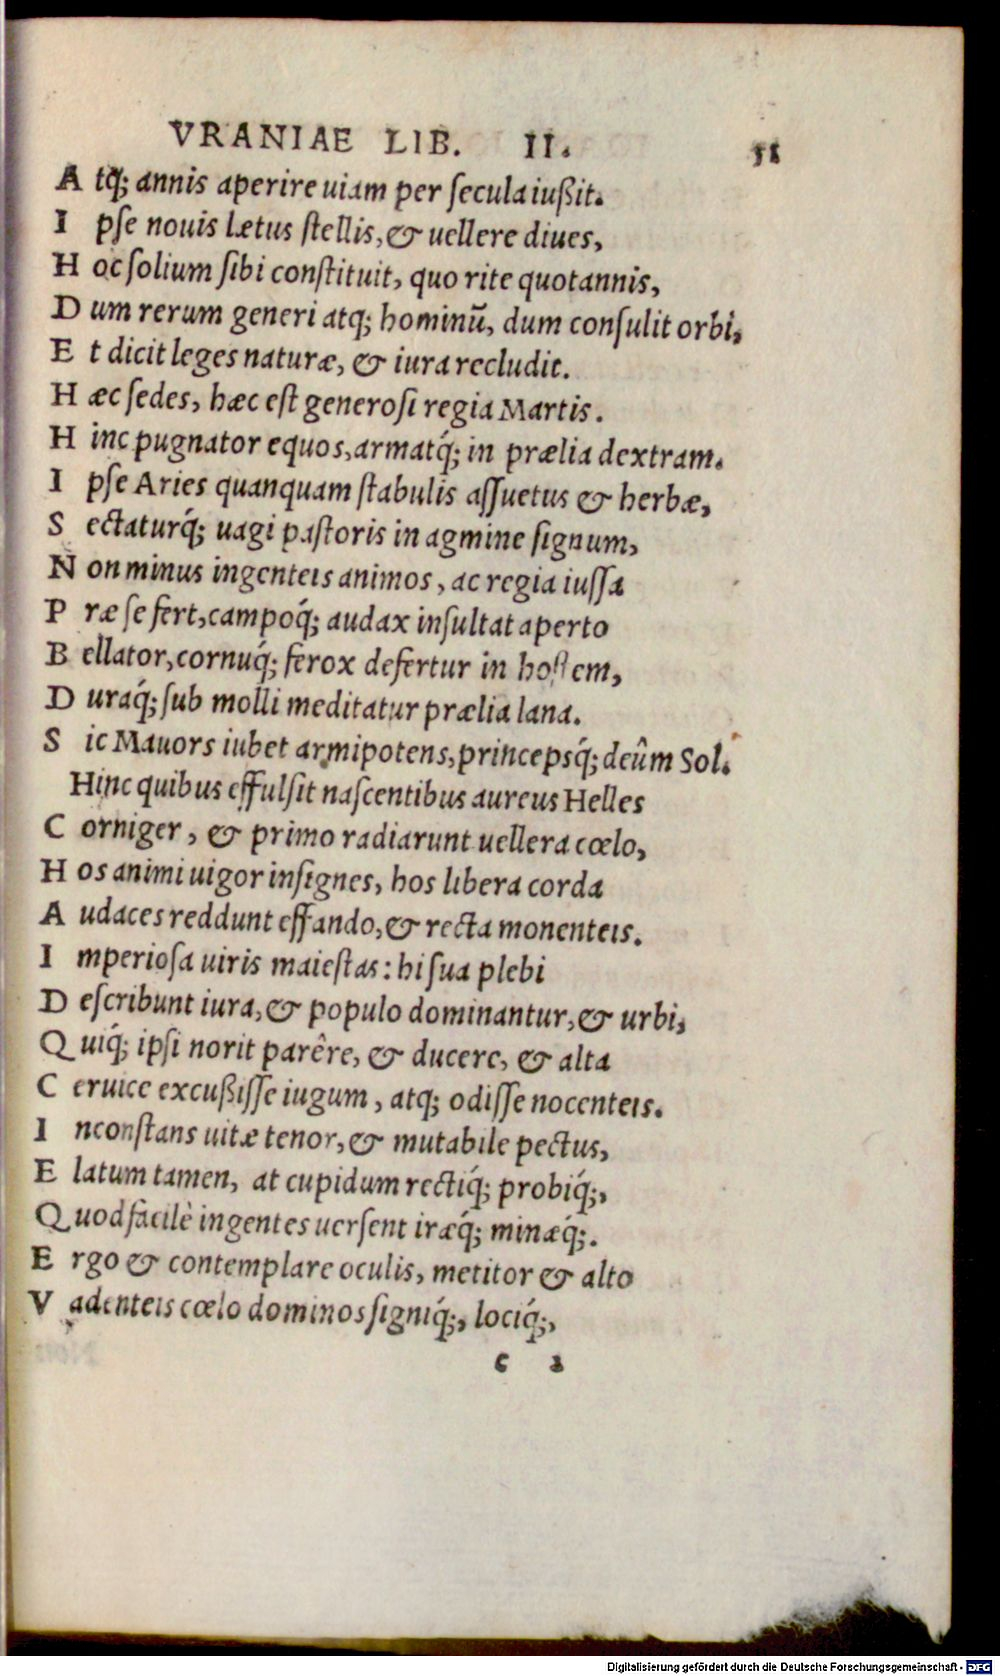 VRANIAE LIB. II. 51
A tq́; annis aperire uiam per secula iußit.
I pse nouis lætus stellis, & uellere diues,
H oc solium sibi constituit, quo rite quotannis,
D um rerum generi atq; hominũ, dum consulit orbi,
E t dicit leges naturæ, & iura recludit.
H æc sedes, hæc est generosi regia Martis.
H inc pugnator equos, armatq́; in prælia dextram.
I pse Aries quanquam stabulis assuetus & herbæ,
S ectaturq́; uagi pastoris in agmine signum,
N on minus ingenteis animos, ac regia iussa
P ræ se fert, campoq́; audax insultat aperto
B ellator, cornuq́; ferox defertur in hostem,
D uraq́; sub molli meditatur prælia lana.
S ic Mauors iubet armipotens, princepsq́; deûm Sol.
Hinc quibus effulsit nascentibus aureus Helles
C orniger, & primo radiarunt uellera cœlo,
H os animi uigor insignes, hos libera corda
A udaces reddunt effando, & recta monenteis.
I mperiosa uiris maiestas: hi sua plebi
D escribunt iura, & populo dominantur, & urbi,
Q uiq́; ipsi norit parêre, & ducere, & alta
C eruice excußisse iugum, atq; odisse nocenteis.
I nconstans uitæ tenor, & mutabile pectus,
E latum tamen, at cupidum rectiq́; probiq́;,
Q uod facilè ingentes uersent iræq́; minæq́;.
E rgo & contemplare oculis, metitor & alto
V adenteis cœlo dominos signiq́;, lociq́;,
c
Digitalisierung gefördert durch die Deutsche Forschungsgemeinschaft - DFG